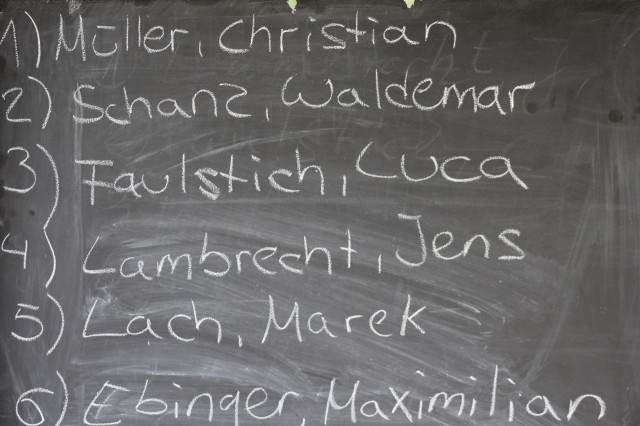 1) Müller, Christian
2) Schanz, Waldemar
3) Faulstich, Luca
4) Lambrecht, Jens
5) Lach, Marek
6) Ebinger, Maximilian